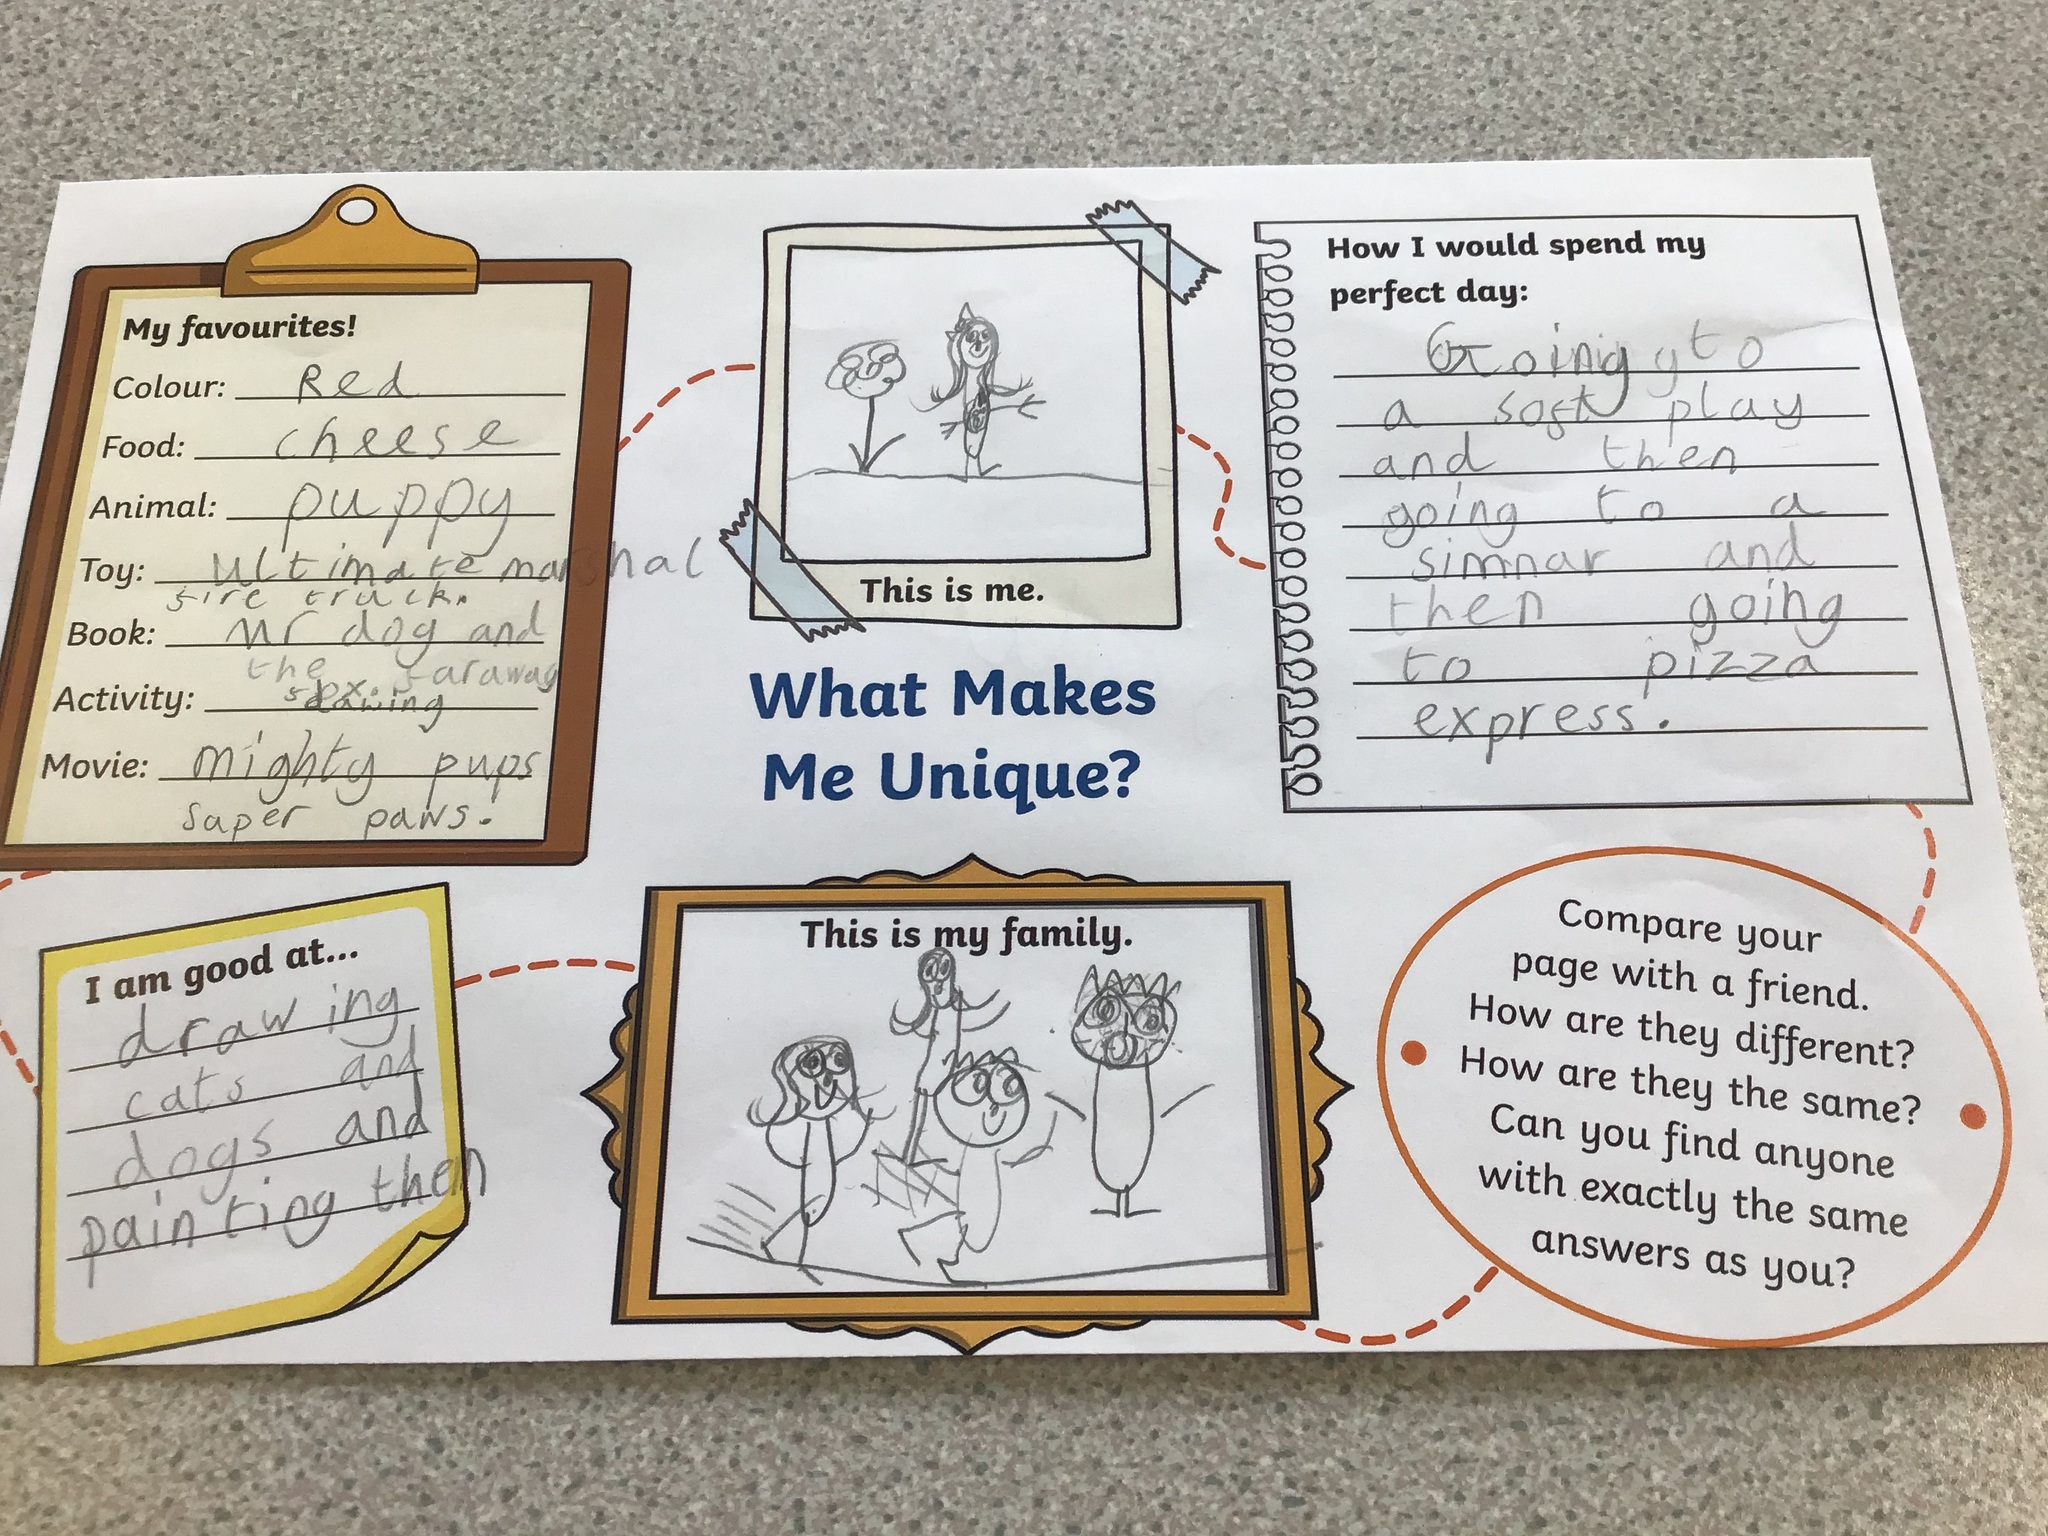 My favourites!
Colour: Red
Food: cheese
Animal: puppy
Toy: Ultimate marshal
fire truck.
Book: Mr dog and
the faraway
fox.
Activity: drawing
Movie: mighty pups
super paws.
This is me.
How I would spend my
perfect day:
Going to
a soft play
and then
going to a
simnar and
then going
to pizza
express.
What Makes
Me Unique?
I am good at...
drawing
cats and
dogs and
painting them
This is my family.
Compare your
page with a friend.
How are they different?
How are they the same?
Can you find anyone
with exactly the same
answers as you?